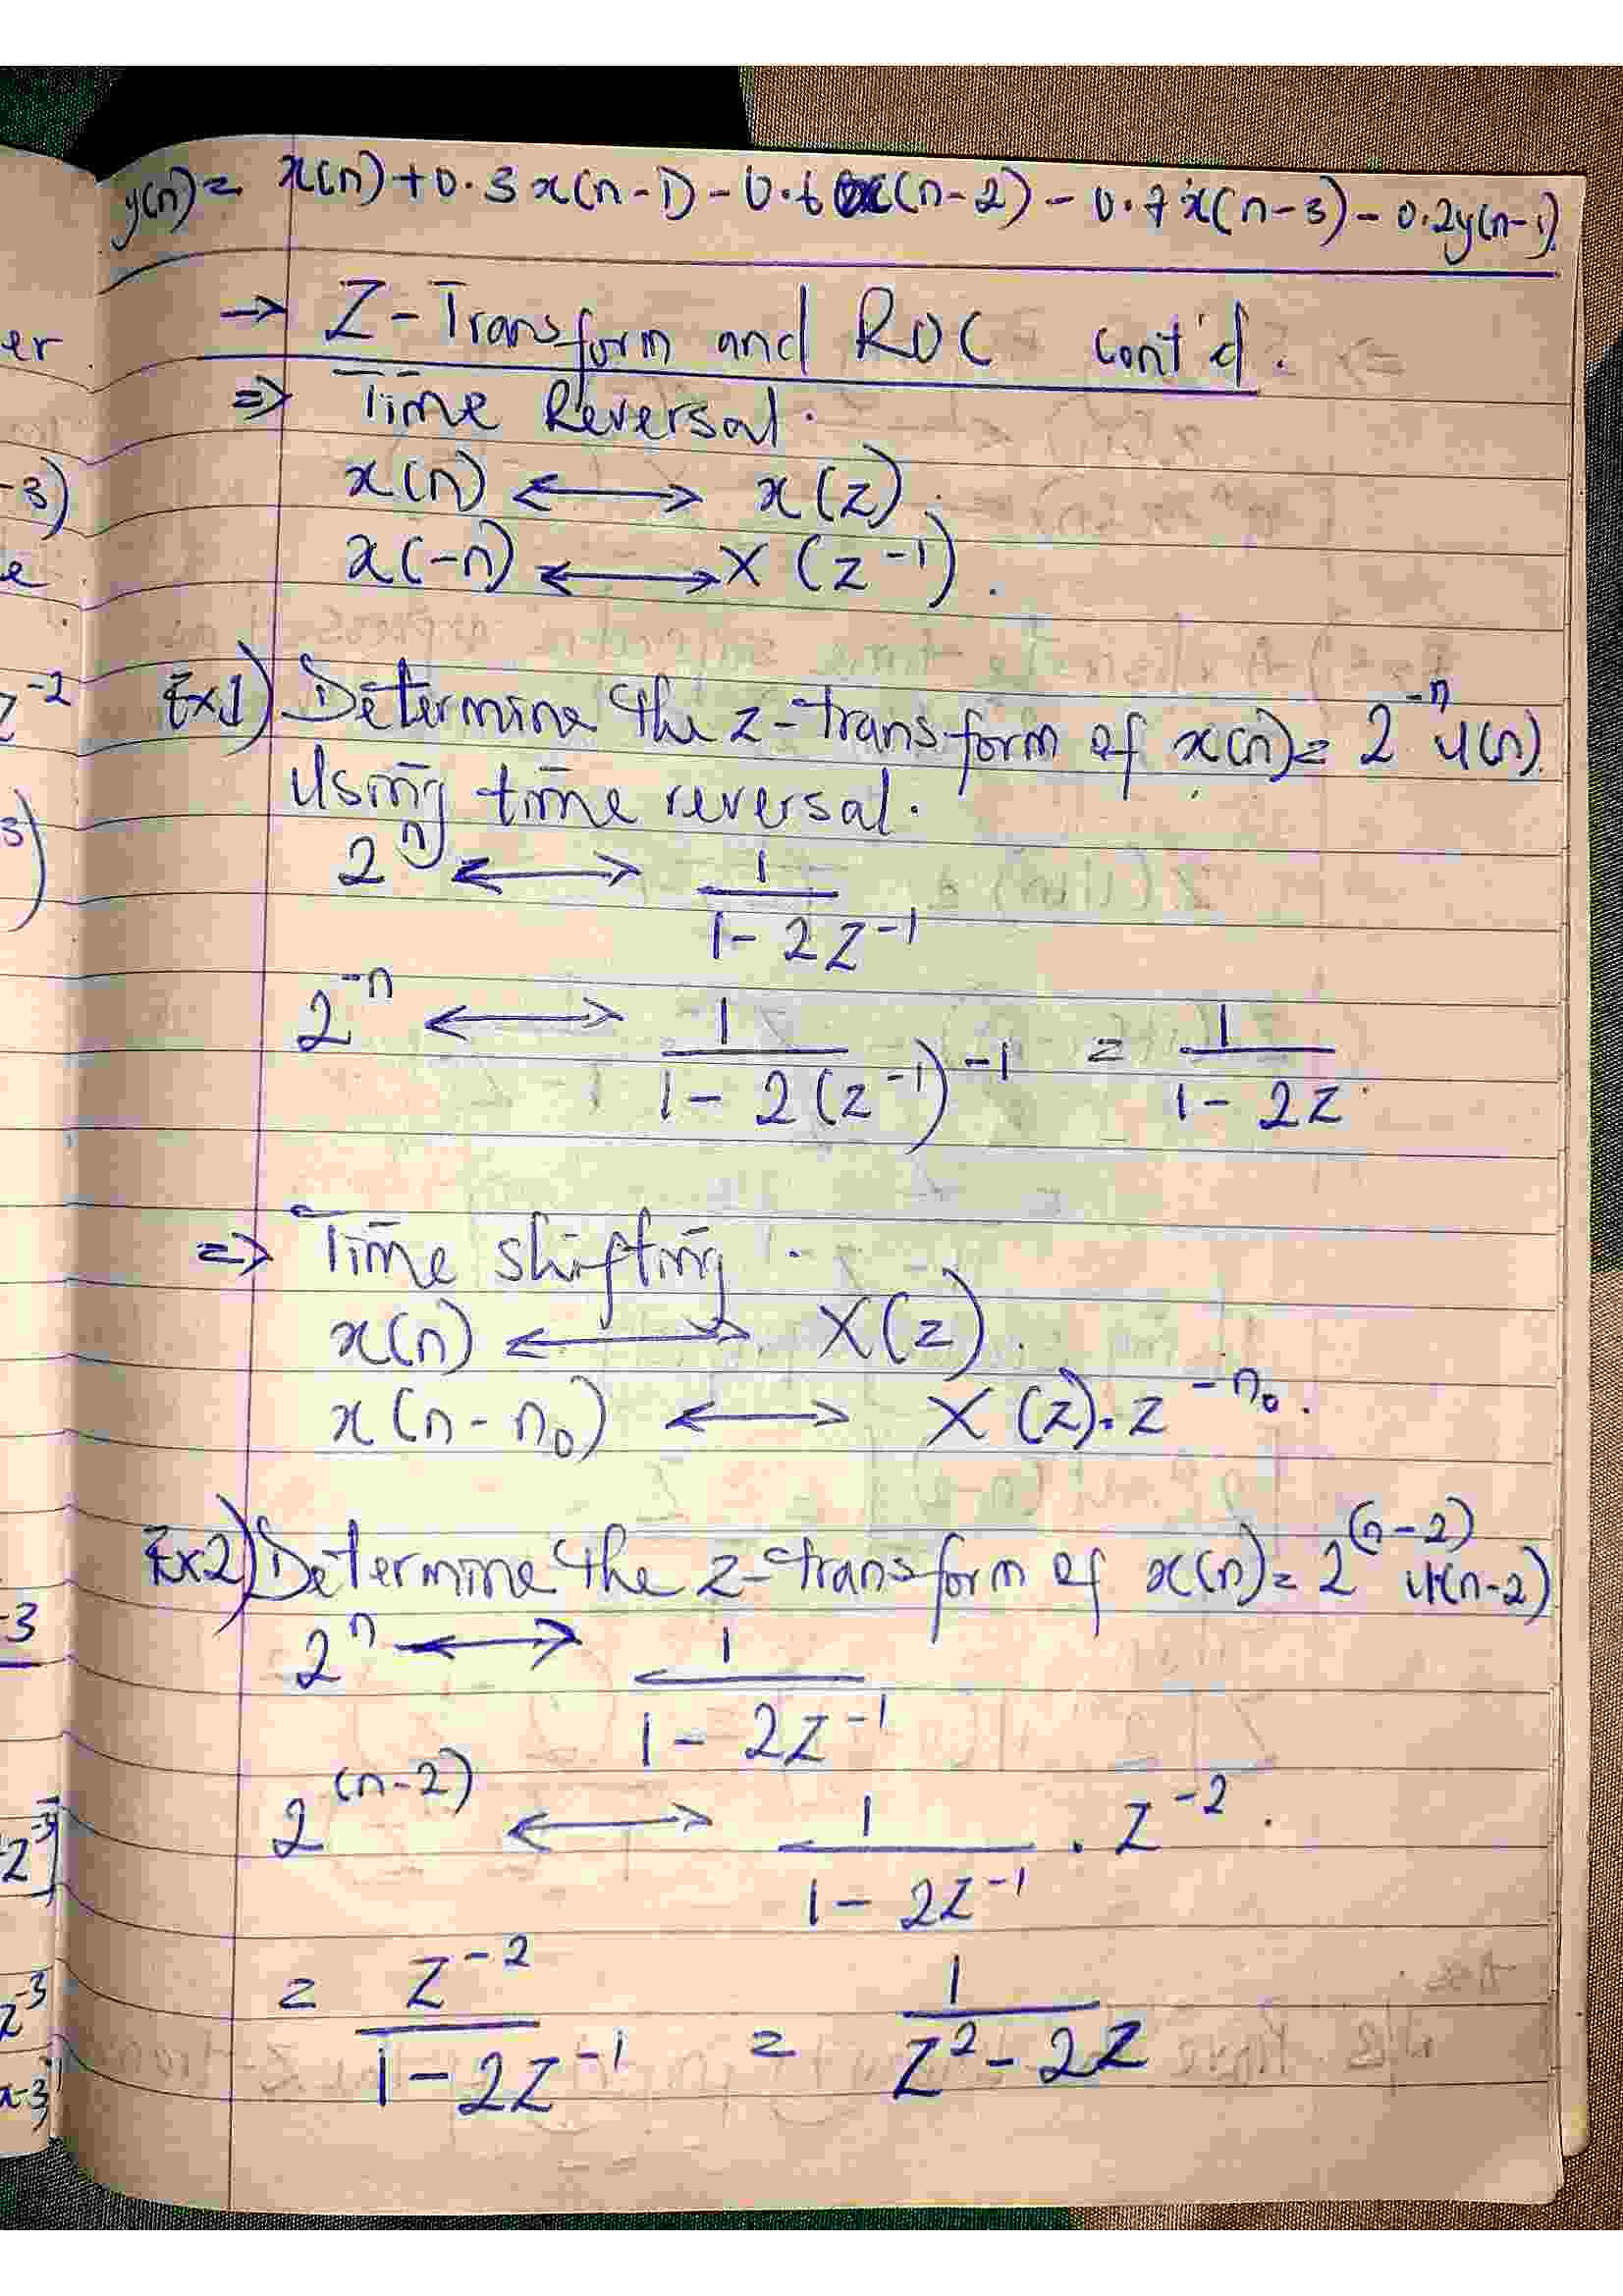 y(n) = x(n) + 0.3x(n-1) - 0.6x(n-2) - 0.7x(n-3) - 0.2y(n-1).
→ Z-Transform and ROC cont'd.
⇒ Time Reversal.
x(n) ⟷ x(z).
x(-n) ⟷ X(z⁻¹).
Ex1) Determine the z-transform of x(n) = 2⁻ⁿ u(n).
Using time reversal.
2ⁿ ⟷ 1/(1 - 2z⁻¹)
2⁻ⁿ ⟷ 1/(1 - 2(z⁻¹)⁻¹) = 1/(1 - 2z)
⇒ Time shifting.
x(n) ⟷ X(z).
x(n - n₀) ⟷ X(z).z^(-n₀).
Ex2) Determine the z-transform of x(n) = 2^(n-2) u(n-2)
2ⁿ ⟷ 1/(1 - 2z⁻¹)
2^(n-2) ⟷ 1/(1 - 2z⁻¹) . z⁻².
= z⁻²/(1 - 2z⁻¹) = 1/(z² - 2z)